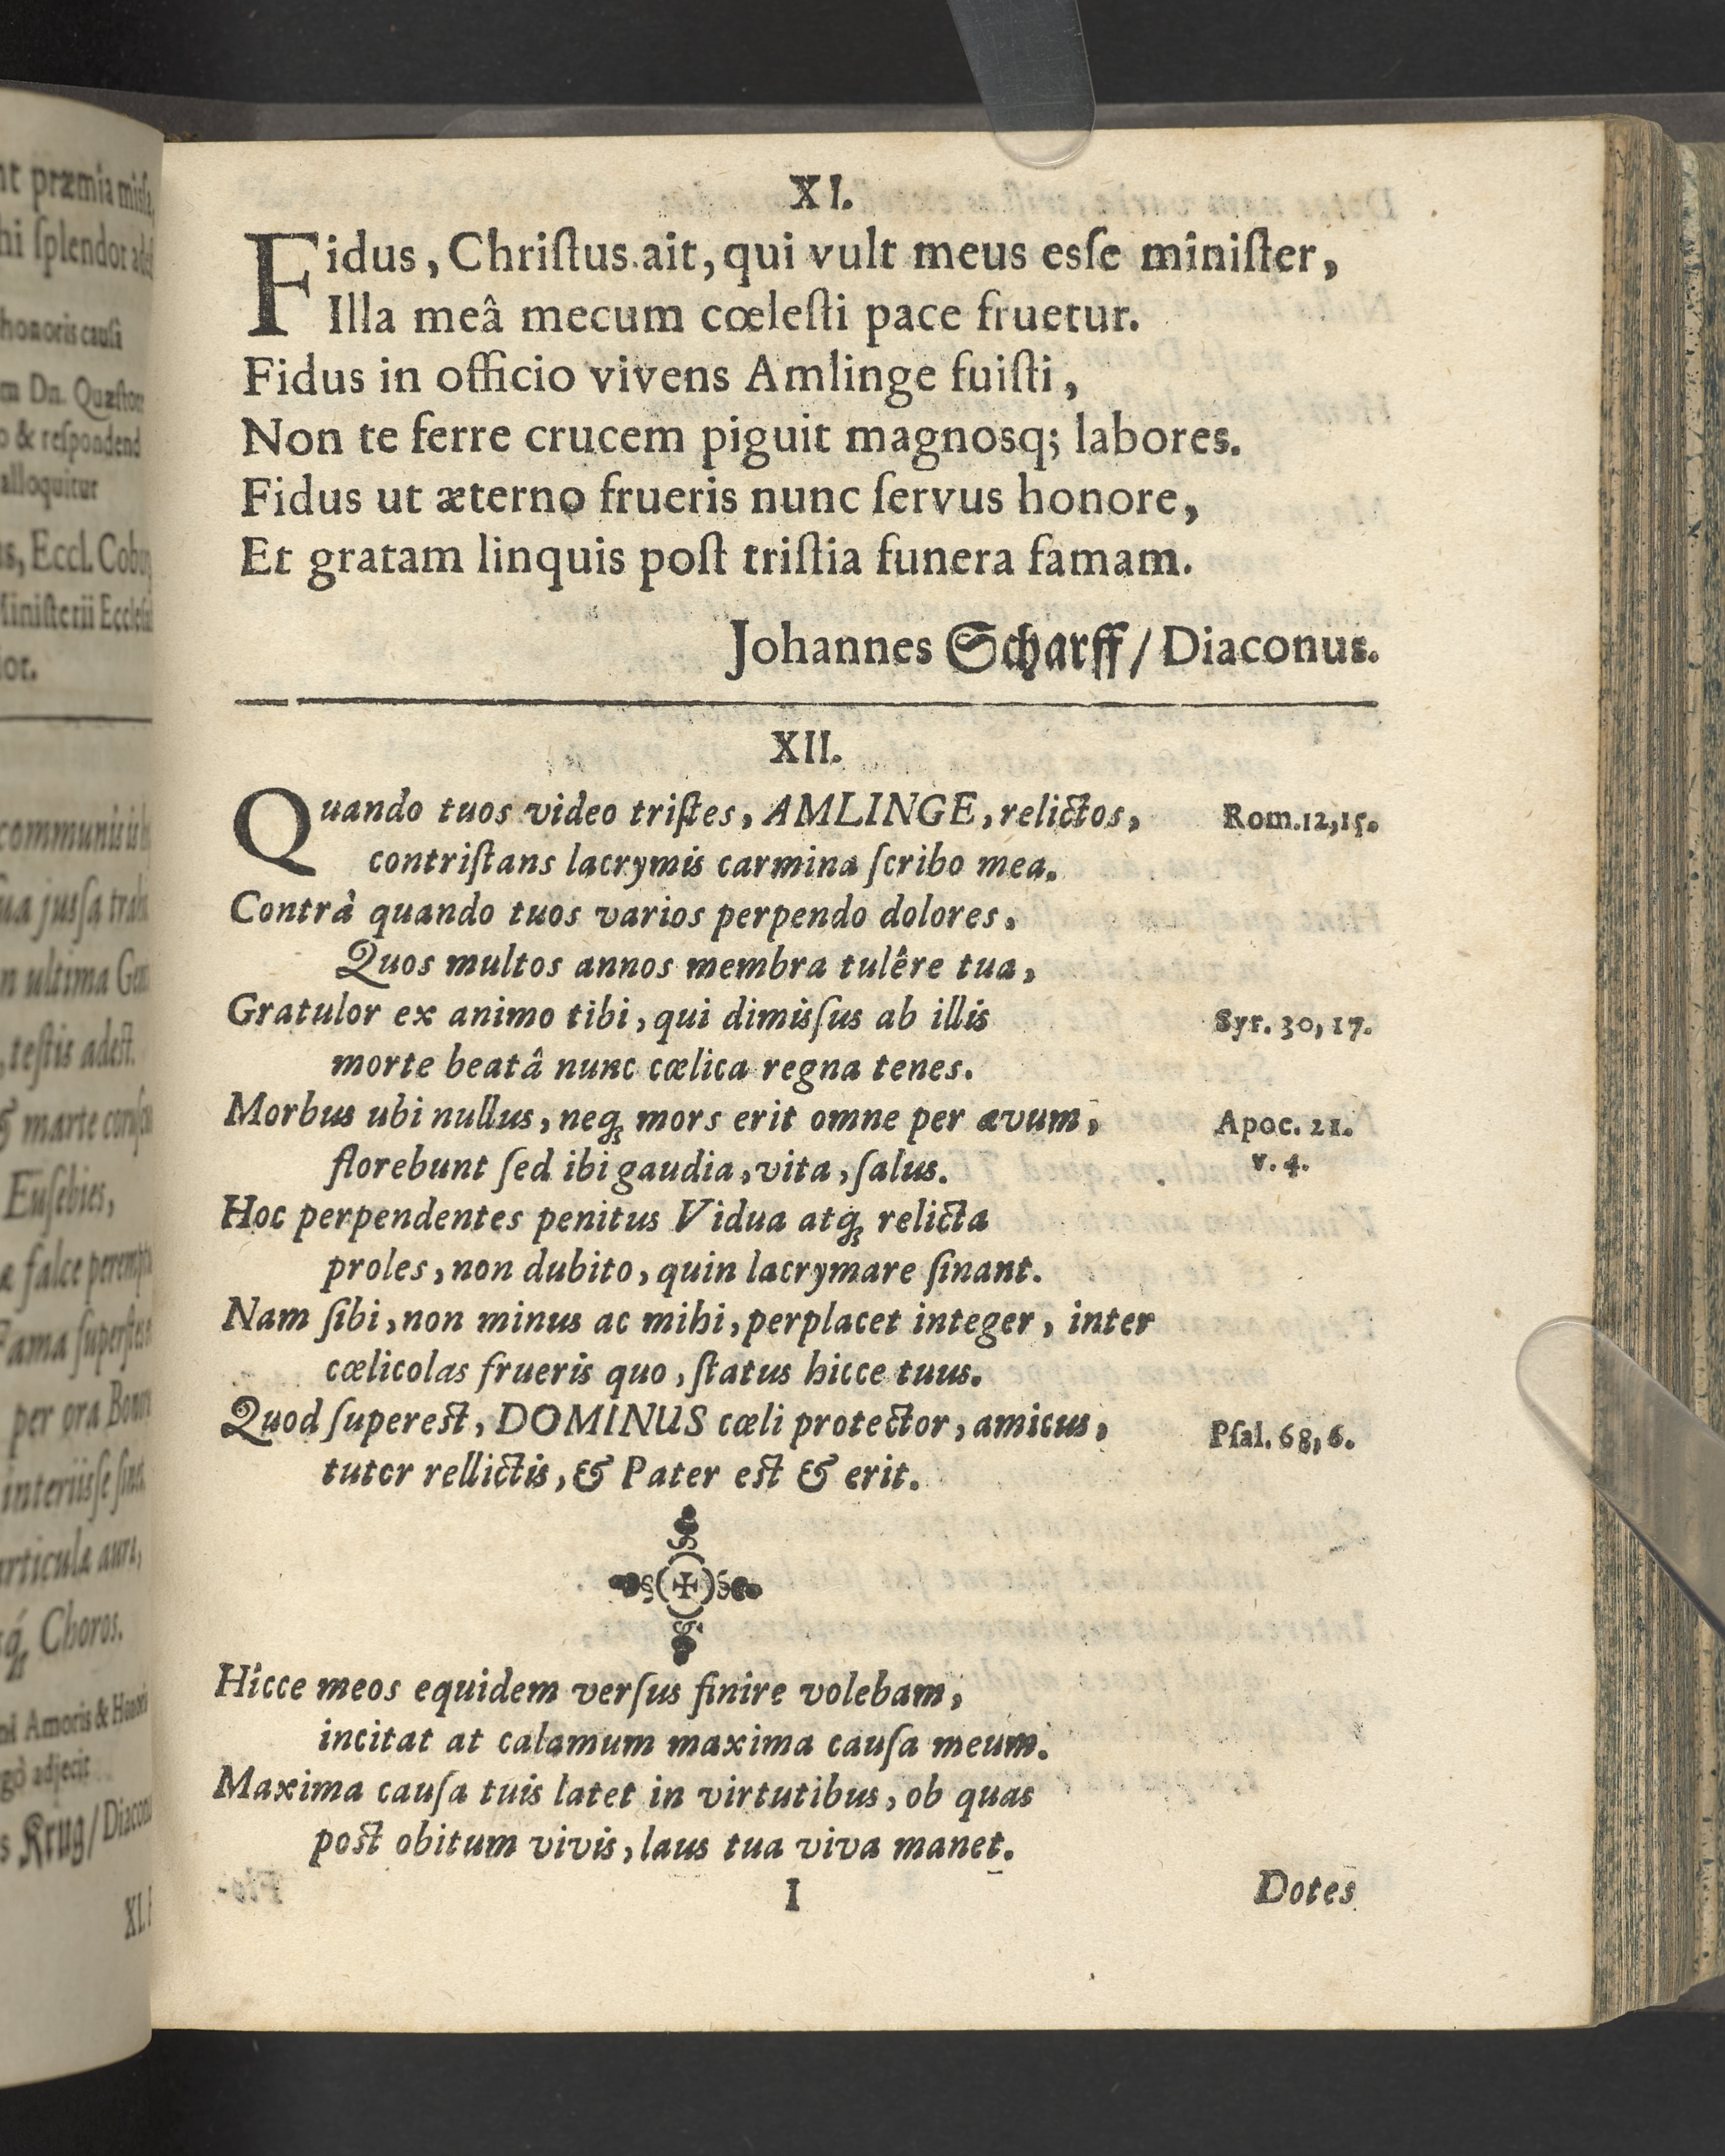 nt præmia misſa,
hi ſplendor
honoris cauſâ
m Dn. Quæſtor
o & reſpondend
alloquitur
s, Eccl. Cob
Miniſterii Eccleſi
ior.
communis
ua jusſa
n ultima
teſtis adeſt.
& marte
Euſebies,
falce
Fama ſuperſtes
per ora
interiisſe
articulæ auræ,
Choros.
Amoris & Honoris
gò adjecit
s Krug/ Diacon
XI.
XI.
Fidus, Chriſtus ait, qui vult meus esſe miniſter,
Illa meâ mecum cœleſti pace fruetur.
Fidus in officio vivens Amlinge fuiſti,
Non te ferre crucem piguit magnosq; labores.
Fidus ut æterno frueris nunc ſervus honore,
Et gratam linquis poſt triſtia funera famam.
Johannes Scharff/ Diaconus.
XII.
Quando tuos video triſtes, AMLINGE, relictos, Rom.12,15.
contriſtans lacrymis carmina ſcribo mea.
Contrà quando tuos varios perpendo dolores,
Quos multos annos membra tulêre tua,
Gratulor ex animo tibi, qui dimisſus ab illis Syr. 30, 17.
morte beatâ nunc cœlica regna tenes.
Morbus ubi nullus, neq; mors erit omne per ævum, Apoc. 21.
florebunt ſed ibi gaudia, vita, ſalus. v. 4.
Hoc perpendentes penitus Vidua atq; relicta
proles, non dubito, quin lacrymare ſinant.
Nam ſibi, non minus ac mihi, perplacet integer, inter
cœlicolas frueris quo, ſtatus hicce tuus.
Quod ſupereſt, DOMINUS cœli protector, amicus, Pſal. 68, 6.
tutor rellictis, & Pater eſt & erit.
Hîcce meos equidem verſus finire volebam,
incitat at calamum maxima cauſa meum.
Maxima cauſa tuis latet in virtutibus, ob quas
poſt obitum vivis, laus tua viva manet.
I Dotes